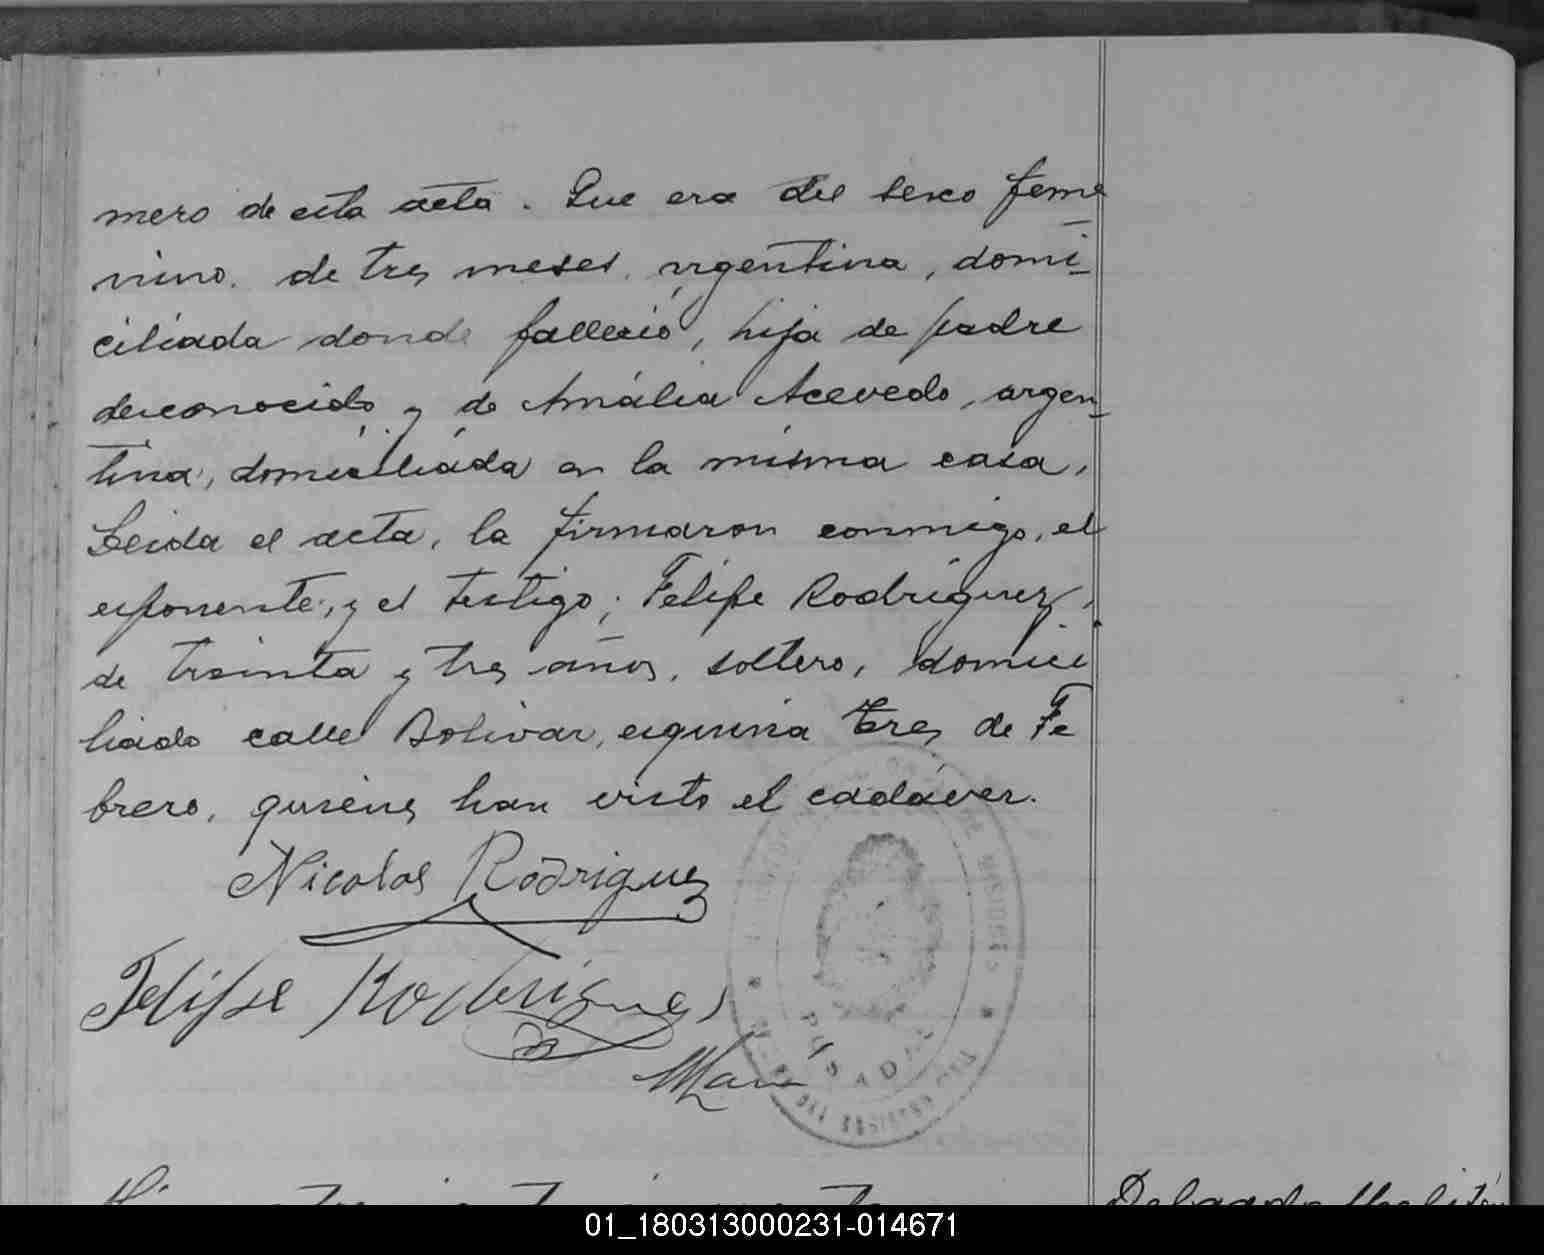 mero de esta acta. Que era del sexo feme
nino. de tres meses, argentina, domi_
ciliada donde falleció, hija de padre
desconocido y de Amália Acevedo, argen_
tina, domiciliada en la misma casa.
Leida el acta, la firmaron conmigo, el
exponente, y el testigo; Felipe Rodriguez,
de treinta y tres años, soltero, domici
liado calle Bolivar, esquina tres de Fe
brero, quienes han visto el cadáver.
Nicolas Rodriguez
Felipe Rodrigues
POSADAS
Delgado
01_180313000231-014671